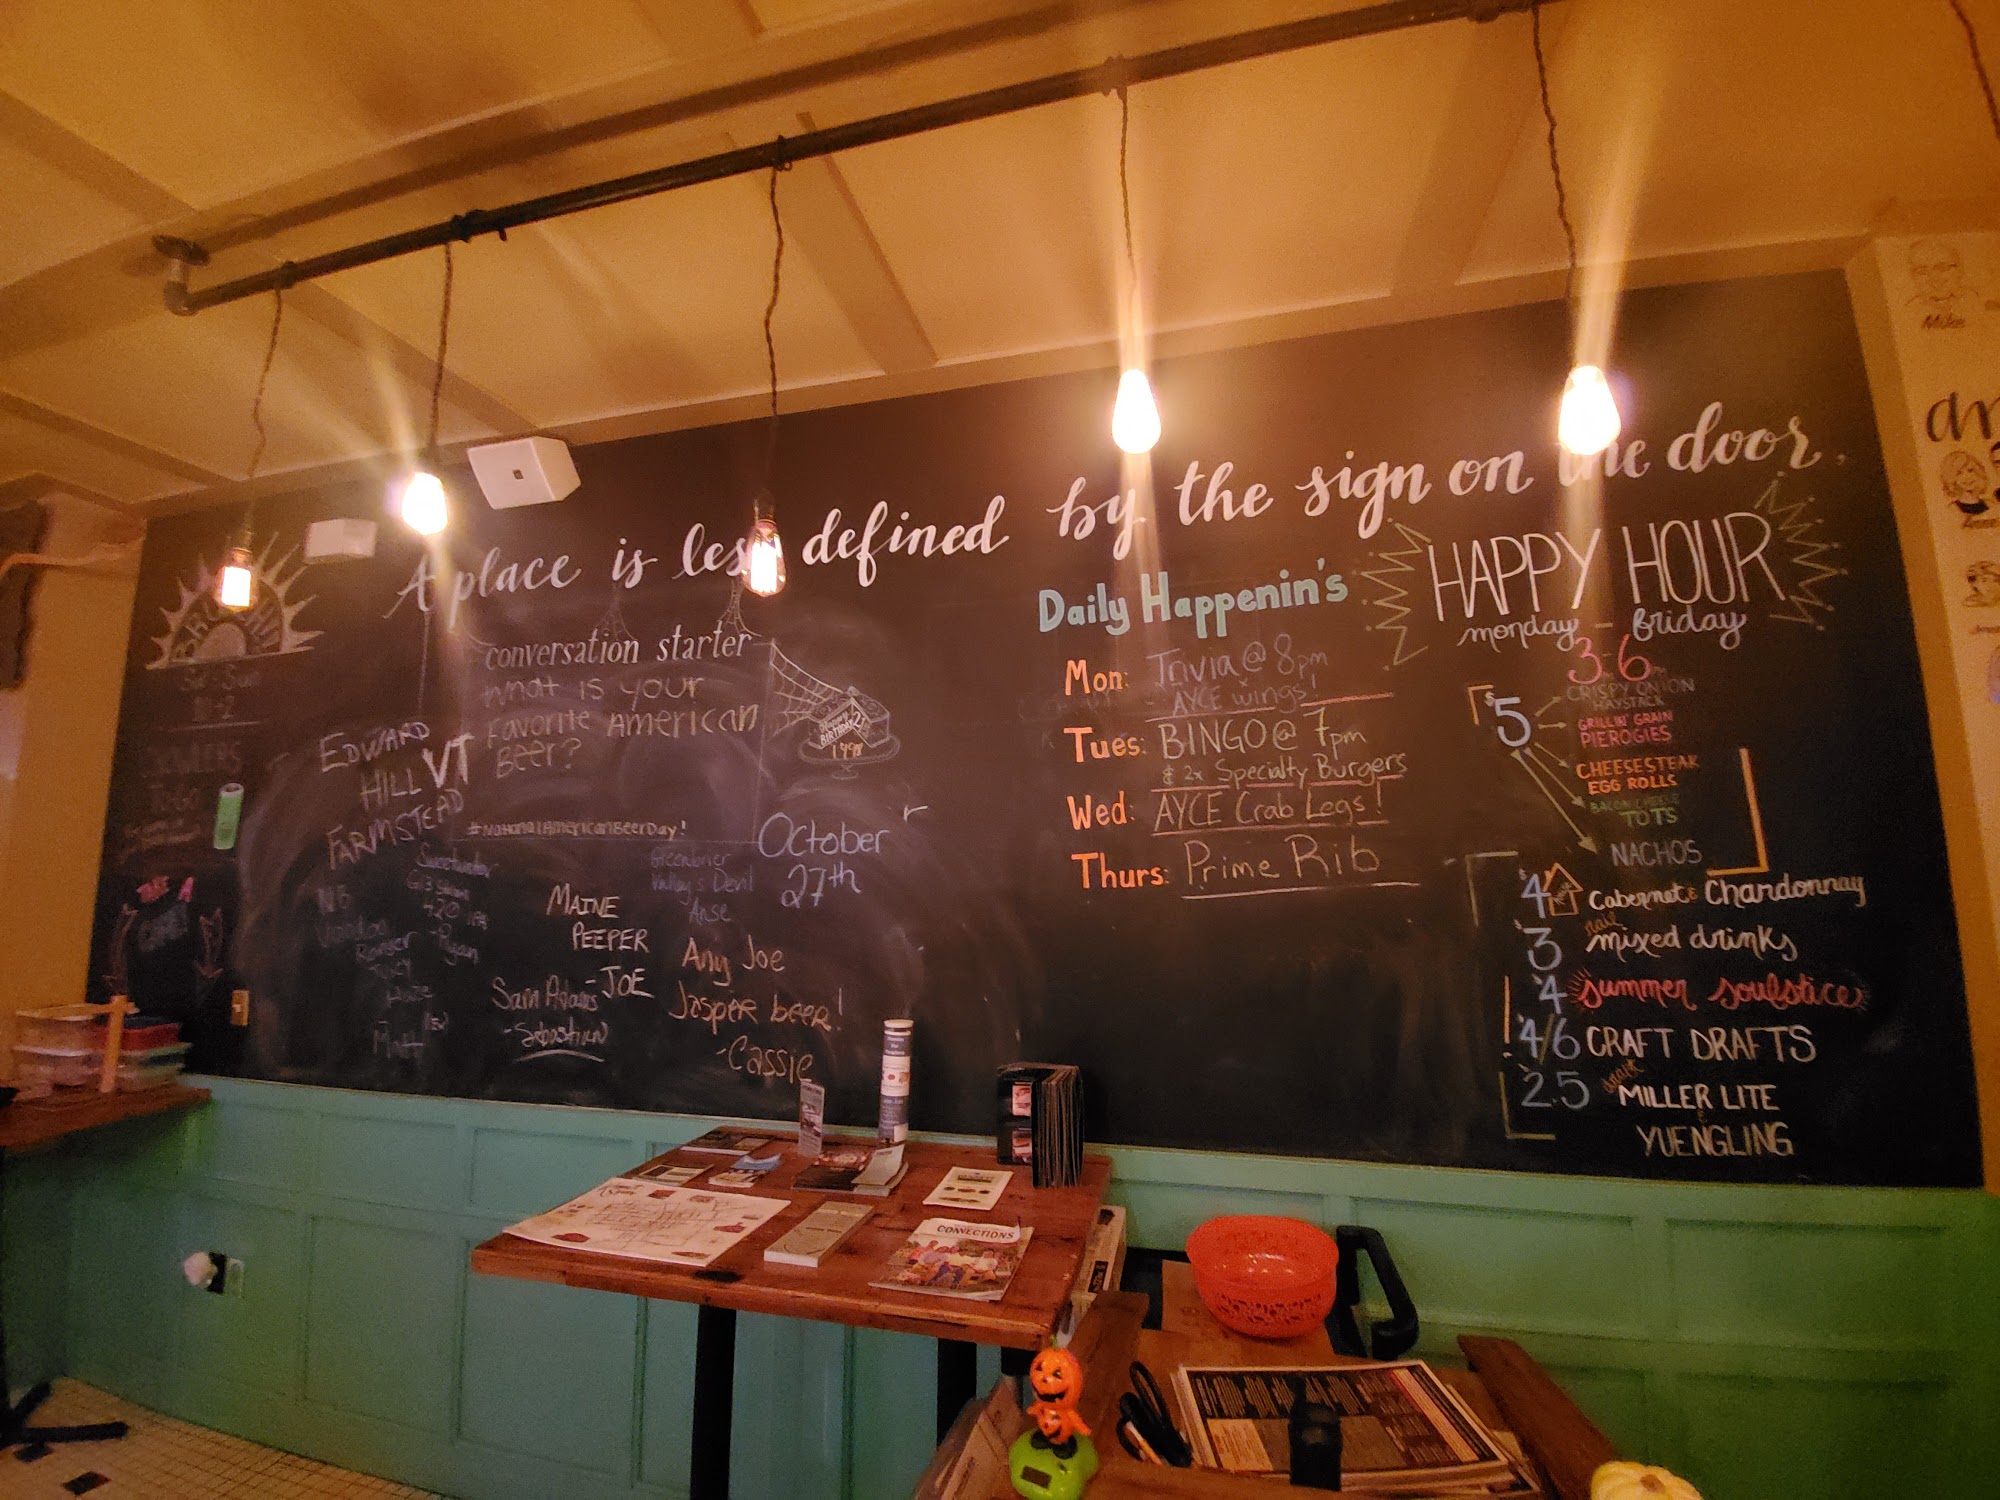 A place is less defined by the sign on the door.
Sat Sun
GROWLERS
TO GO
conversation starter
What is your
Favorite American
Beer?
#NationalAmericanBeerDay!
October
27th
BIRTHDAY
EDWARD
HILL VT
FARMSTEAD
Sweetwater
G13 Strain
420 IPA
-Ryan
Voodoo
Ranger
Juicy
Haze
Matt
MAINE
PEEPER
-JOE
Sam Adams
-Sebastian
Greenbrier
Valley's Devil
Anse
Any Joe
Jasper beer!
-Cassie
Daily Happenin's
Mon: Trivia @ 8pm
AYCE wings!
Tues: BINGO @ 7pm
& 2x Specialty Burgers
Wed: AYCE Crab Legs!
Thurs: Prime Rib
HAPPY HOUR
monday - friday
3-6pm
$5
CRISPY ONION
HAYSTACK
GRILLIN' GRAIN
PIEROGIES
CHEESESTEAK
EGG ROLLS
BACON CHEESE
TOTS
NACHOS
$4 House Cabernet & Chardonnay
$3 rail mixed drinks
$4 summer soulstice
$4/6 CRAFT DRAFTS
$2.5 draft MILLER LITE
&
YUENGLING
Mike
Anne
CONNECTIONS